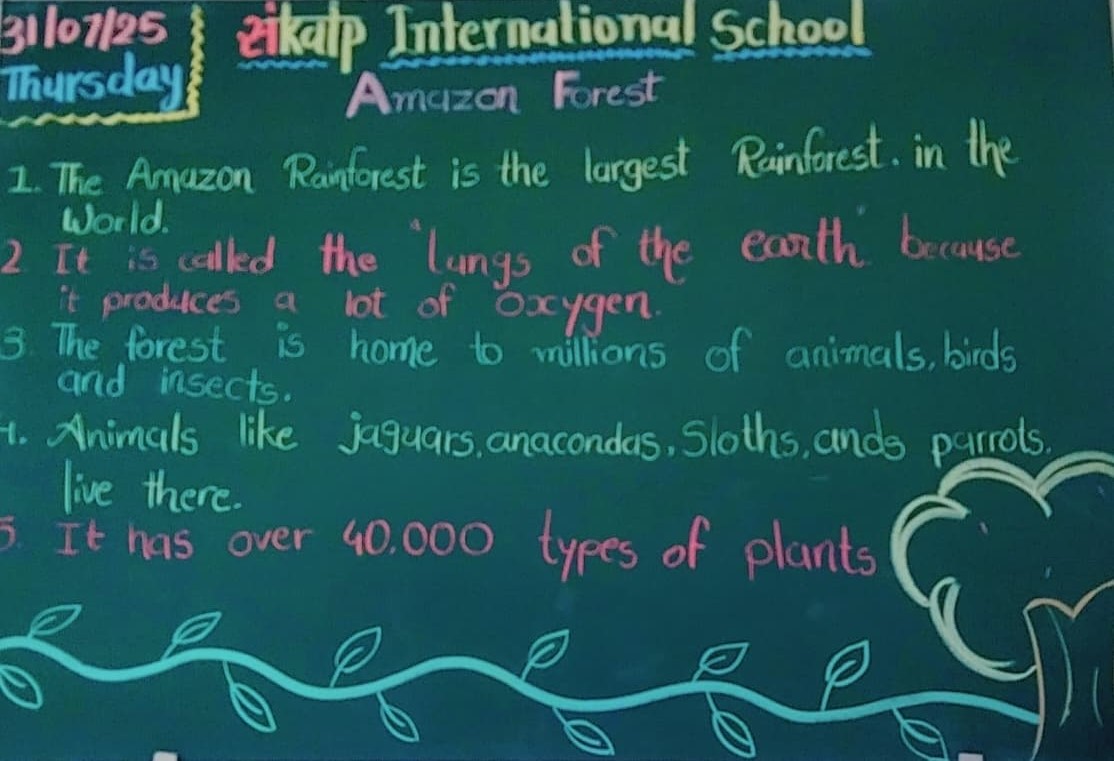 31/07/25 संkalp International School
Thursday
Amazon Forest
1. The Amazon Rainforest is the largest Rainforest. in the
World.
2 It is called the "lungs of the earth" because
it produces a lot of Oxygen.
3. The forest is home to millions of animals, birds
and insects.
4. Animals like jaguars, anacondas, Sloths, ands parrots.
live there.
5. It has over 40,000 types of plants